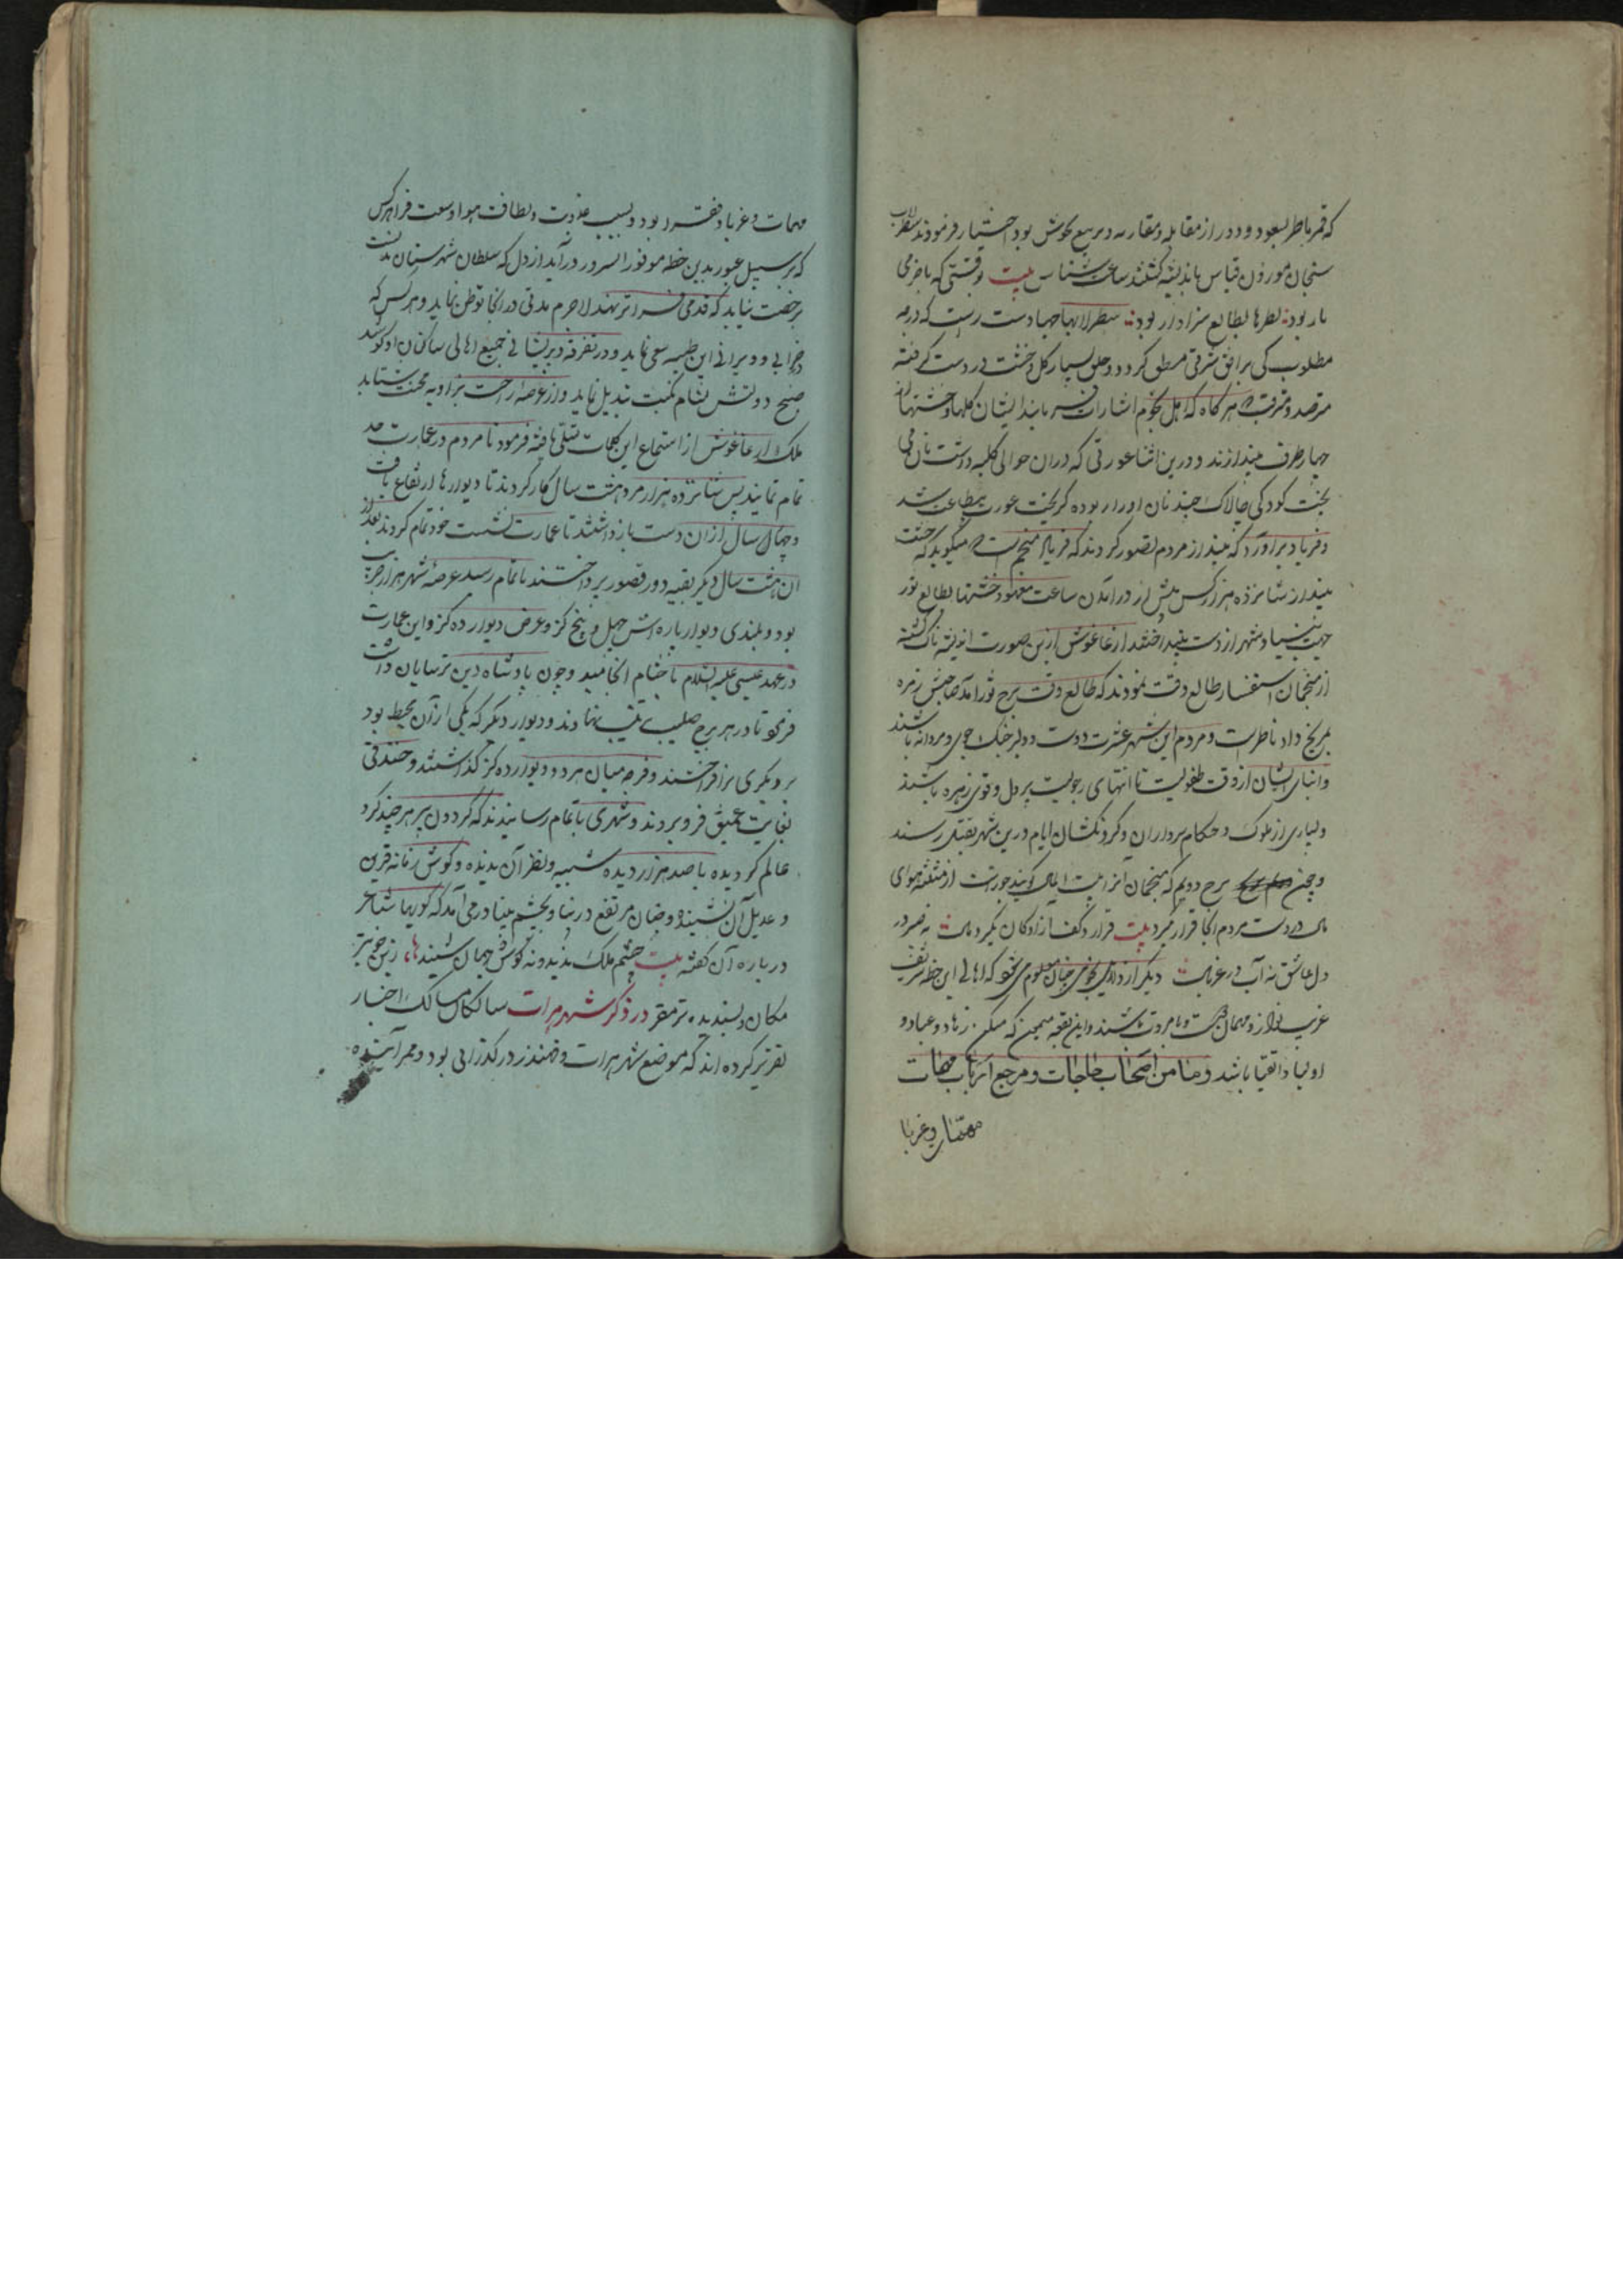 که قمر ناظر بسعود و دور از مقابله و مقارنه و تربیع نحوش بود اختیار فرمودند سطرلاب
سنجان موزون قیاس باندیشه کشتند ساعت شناس بیت وقتی که باخرمی
یار بود نظرها بطالع سزاوار بود سطرلابها جهاد دست راست که درجه
مطلوب کی بر افق شرقی منطبق کردد و خلق بسیار کل و خشت در دست کرفته
مترصد و مترقب هر گاه که اهل نجوم اشارات فرمایند ایشان کلها و خشتها از
چهار طرف بیندازند و درین اثنا عورتی که دران حوالی کلبه داشت نان می
پخت کودکی چالاک چند نان او را ربوده کریخت عورت بیطاقت شد
و فریاد برآورد که بینداز مردم تصور کردند که فریاد منجم است میکوید که خشت
بینداز شانزده هزار کس پیش از درآمدن ساعت معهود خشتها بطالع ثور
جهت بنیاد شهر از دست بینداختند ارغاغوش ازین صورت اندیشه ناک کشته
از منجمان استفسار طالع وقت نمودند که طالع وقت برج ثور آمد صاحبش زهره
بمریخ داد ناظرست و مردم این شهر عشرت دوست و دلیر جنک جوی و مردانه باشند
و ابنای ایشان از وقت طفولیت تا انتهای رجولیت پردل و قوی زهره باشند
و بسیاری از ملوک و حکام سرداران و کردنکشان ایام درین شهر بقتل رسند
و چون برج دویم که منجمان آنرا بیت المال کویند جوزاست از مثلثه هوای
مال در دست مردم آنجا قرار نکیرد بیت قرار در کف آزادکان نکیرد مال نه صبر در
دل عاشق نه آب در غربال دیکر از دلایل نجومی چنان معلوم می شود که اهالی این خطه شریف
غریب نواز و مهمان دوست و بامروت باشند و این بقعه میمون که مسکن زهاد و عباد و
اولیا و اتقیا باشد و مأمن اصحاب حاجات و مرجع ارباب مهمات
مهمات و غربا
مهمات و غربا و فقرا بود و بسبب عذوبت و لطافت هوا و وسعت فرا هر کس
که بر سبیل عبور بدین خطه موفور السرور درآید از دل که سلطان شهرستان بدنست
رخصت نیابد که قدمی فراتر نهد لاجرم مدتی در آنجا توطن نماید و هر کس که
در خرابی و ویرانی این طیبه سعی نماید و در تفرقه و پریشانی جمیع اهالی ساکنان او کوشد
صبح دولتش بشام نکبت تبدیل نماید و از عرصه راحت بزاویه محنت شتابد
ملک ارغاغوش از استماع این کلمات تسلی یافته فرمود تا مردم در عمارت جد
تمام نمایند پس شانزده هزار مرد هشت سال کار کردند تا دیوارها ارتفاع یافت
و چهار سال از ان دست بازداشتند تا عمارت نشست خود تمام کردند بعد از
ان هشت سال دیکر بقیه دور قصور پرداختند تا تمام رسید عرصه شهر هزار جریب
بود و بلندی دیوار باره اش چهل و پنج کز و عرض دیوار ده کز و این عمارت
در عهد عیسی علیه السلام باختتام انجامید و چون پادشاه دین ترسایان داشت
فرمود تا در هر برج صلیب تعبیه نهادند و دیوار دیکر که یکی از آن محیط بود
بر دیکری برافراختند و فرجه میان هر دو دیوار ده کز کذاشتند و خندقی
بغایت عمیق فرو بردند و شهری باتمام رسانیدند که کردون پیر هر چند کرد
عالم کردیده با صد هزار دیده شبیه و نظیر آن ندیده و کوش زمانه قرین
و عدیل آن نشنیده و چنان مرتفع در بنا و بچشم بینا درمی آمد که کوییا شاعر
درباره آن کفته بیت چشم ملک ندیده و نه کوش جهان شنیدها، زین خوبتر
مکان و پسندیده تر مقر در ذکر شهر هرات سالکان مسالک اخبار
تقریر کرده اند که موضع شهر هرات و قهندز در کذرانی بود و ممر آینده